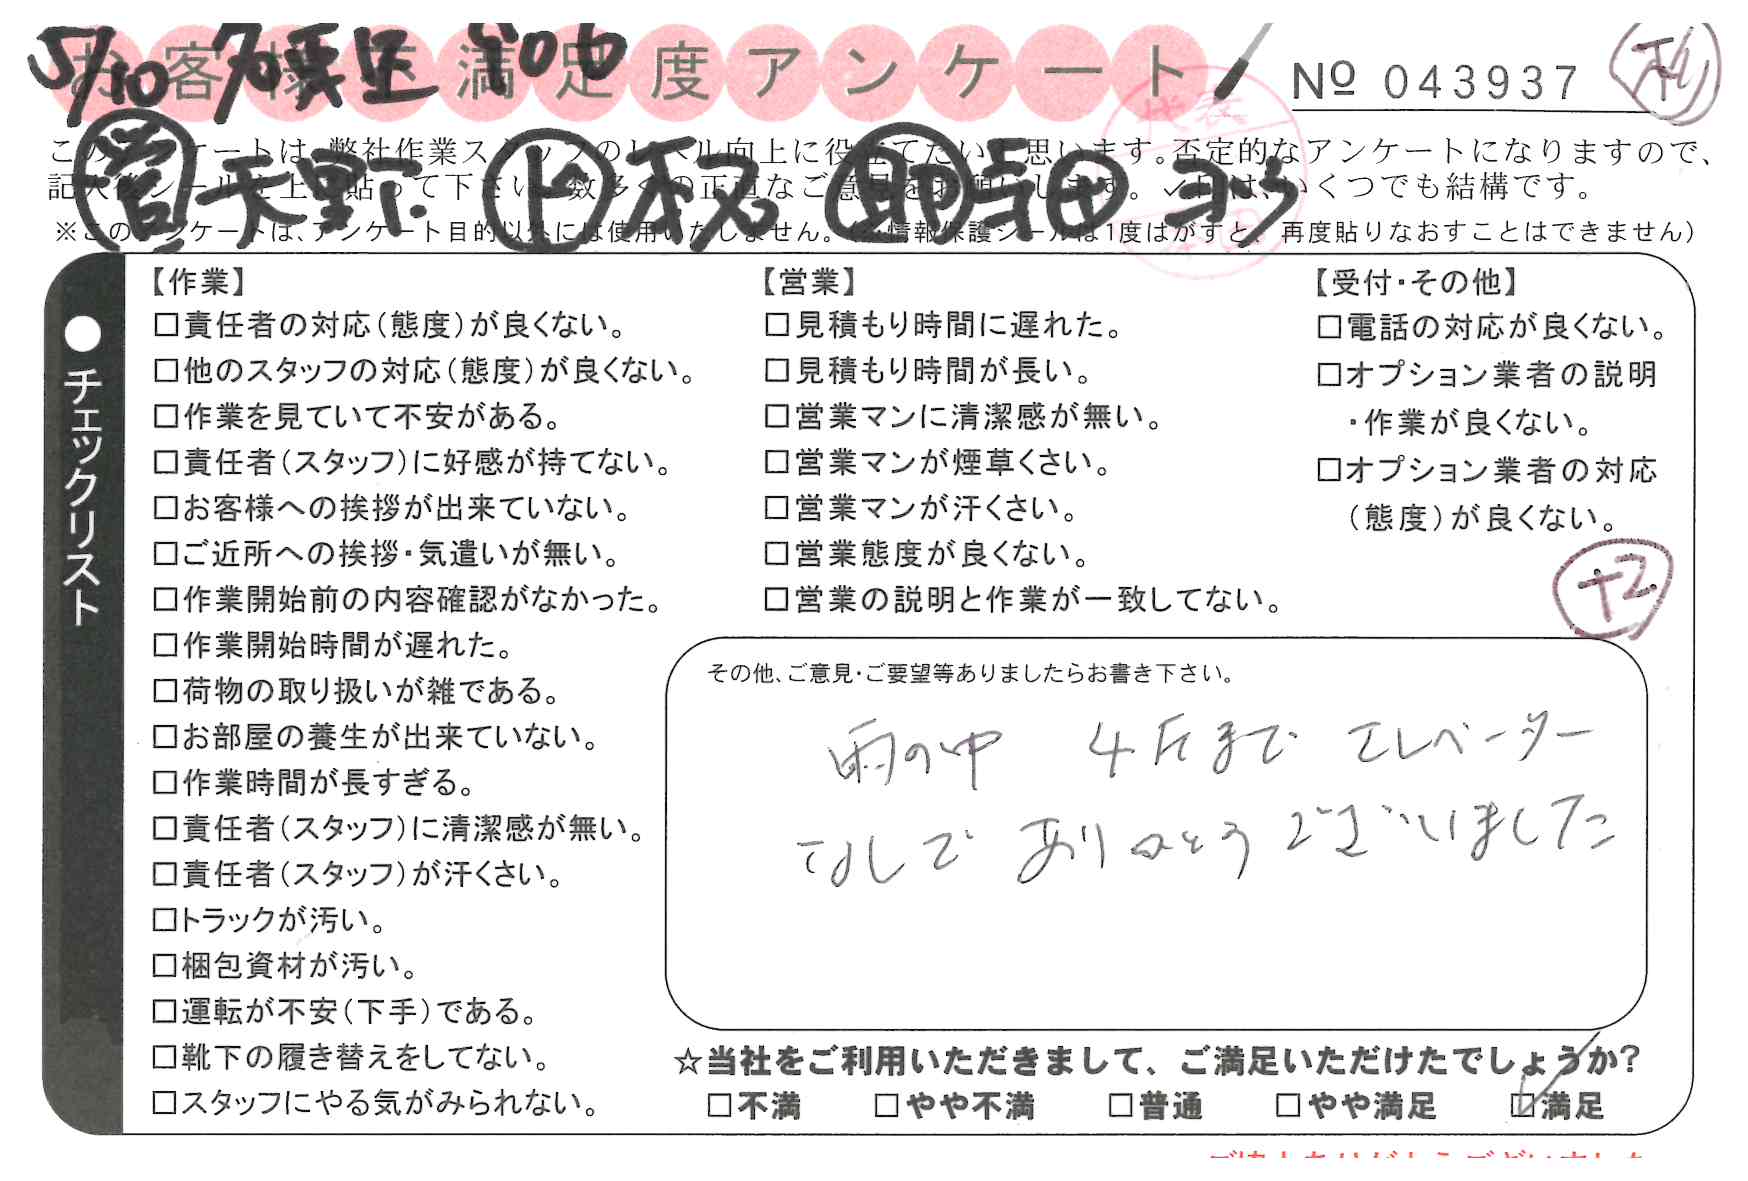 お客様ご満足度アンケート
5/10
№ 043937
このアンケートは、弊社作業スタッフのレベル向上に役立てたいと思います。否定的なアンケートになりますので、
記入後シールを上に貼って下さい。数多くの正直なご意見をお願いします。✓印は、いくつでも結構です。
営 天野
※このアンケートは、アンケート目的以外には使用いたしません。(※情報保護シールは1度はがすと、再度貼りなおすことはできません)
●チェックリスト
【作業】
□責任者の対応(態度)が良くない。
□他のスタッフの対応(態度)が良くない。
□作業を見ていて不安がある。
□責任者(スタッフ)に好感が持てない。
□お客様への挨拶が出来ていない。
□ご近所への挨拶・気遣いが無い。
□作業開始前の内容確認がなかった。
□作業開始時間が遅れた。
□荷物の取り扱いが雑である。
□お部屋の養生が出来ていない。
□作業時間が長すぎる。
□責任者(スタッフ)に清潔感が無い。
□責任者(スタッフ)が汗くさい。
□トラックが汚い。
□梱包資材が汚い。
□運転が不安(下手)である。
□靴下の履き替えをしてない。
□スタッフにやる気がみられない。
【営業】
□見積もり時間に遅れた。
□見積もり時間が長い。
□営業マンに清潔感が無い。
□営業マンが煙草くさい。
□営業マンが汗くさい。
□営業態度が良くない。
□営業の説明と作業が一致してない。
【受付・その他】
□電話の対応が良くない。
□オプション業者の説明
・作業が良くない。
□オプション業者の対応
(態度)が良くない。
+2
その他、ご意見・ご要望等ありましたらお書き下さい。
雨の中 4Fまで エレベーター
なしで ありがとうございました
☆当社をご利用いただきまして、ご満足いただけたでしょうか?
□不満 □やや不満 □普通 □やや満足 ☑満足